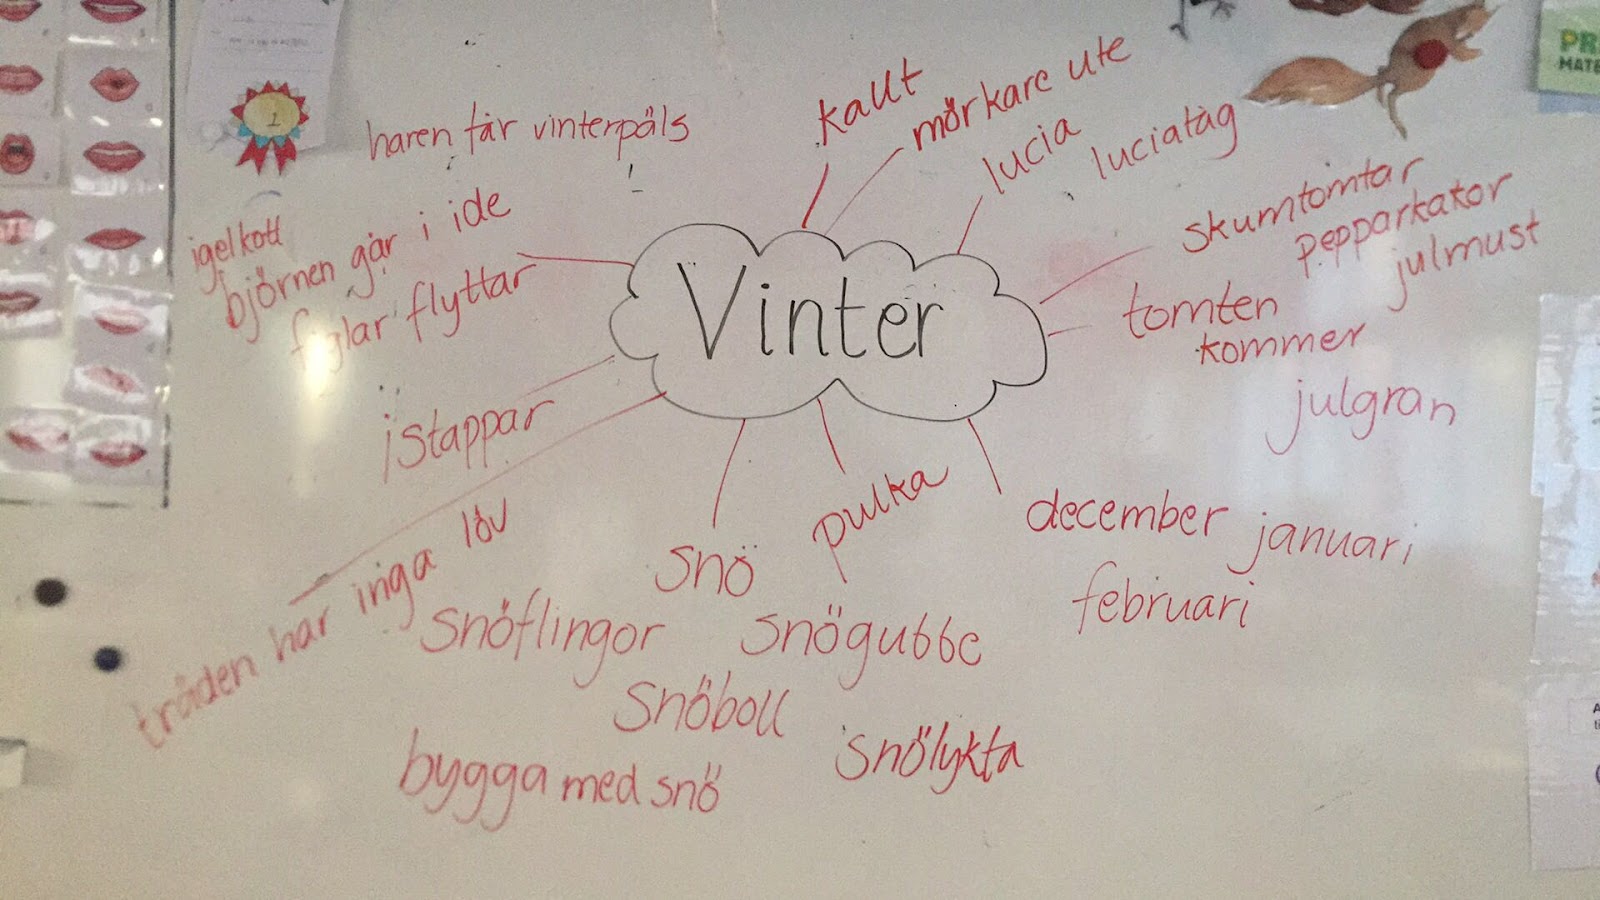 haren får vinterpäls
kallt
mörkare ute
lucia
luciatåg
igelkott
björnen går i ide
fåglar flyttar
Vinter
skumtomtar
pepparkakor
julmust
tomten
kommer
julgran
istappar
träden har inga löv
snö
pulka
december januari
februari
snöflingor
snögubbe
snöboll
snölykta
bygga med snö
1
MATE